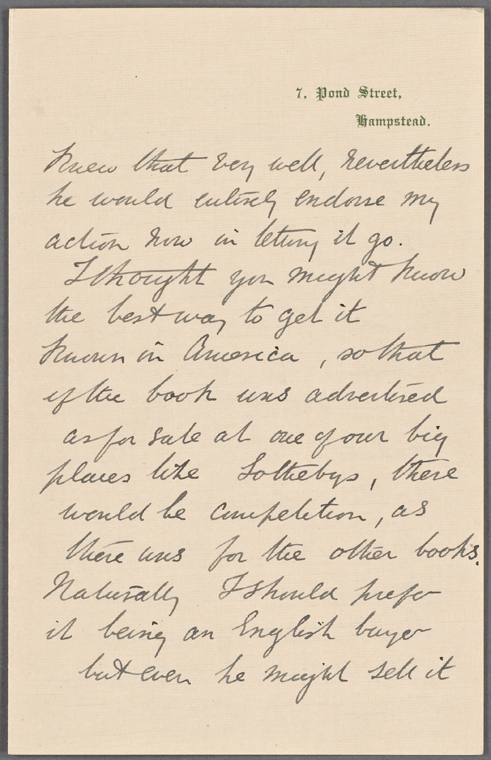 7, Pond Street,
Hampstead.
knew that very well, nevertheless
he would entirely endorse my
action now in letting it go.
I thought you might know
the best way to get it
known in America, so that
if the book was advertised
as for sale at one of our big
places like Sothebys, there
would be competition, as
there was for the other books.
Naturally I should prefer
it being an English buyer
but even he might sell it